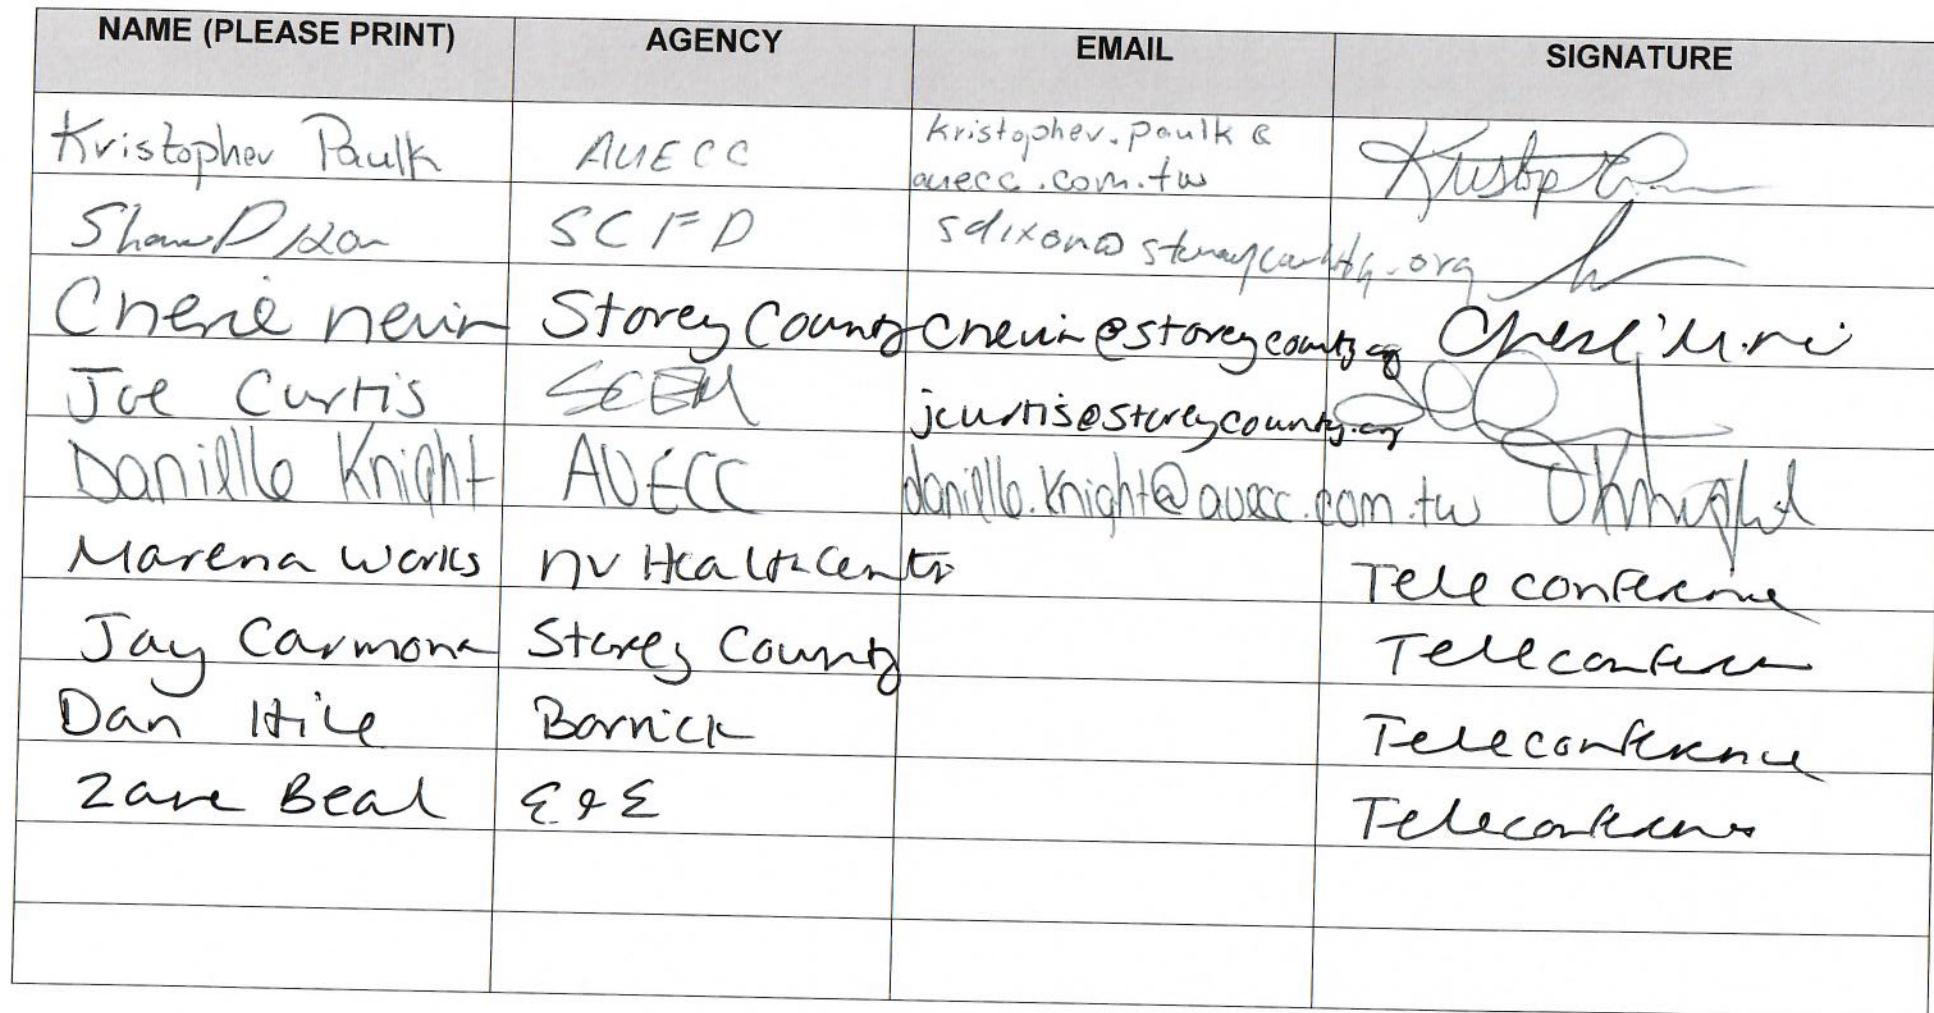 NAME (PLEASE PRINT) AGENCY EMAIL SIGNATURE
Kristopher Paulk AUECC kristopher.paulk@
auecc.com.tw
Shawn Dixon SCFD sdixon@storeycounty.org
Cherie Nevin Storey County cnevin@storeycounty.org
Joe Curtis SCEM jcurtis@storeycounty.org
Danielle Knight AUECC danielle.knight@auecc.com.tw DKnight
Marena Works NV Health Center Teleconference
Jay Carmona Storey County Teleconference
Dan Hile Barrick Teleconference
Zane Beal E&E Teleconference